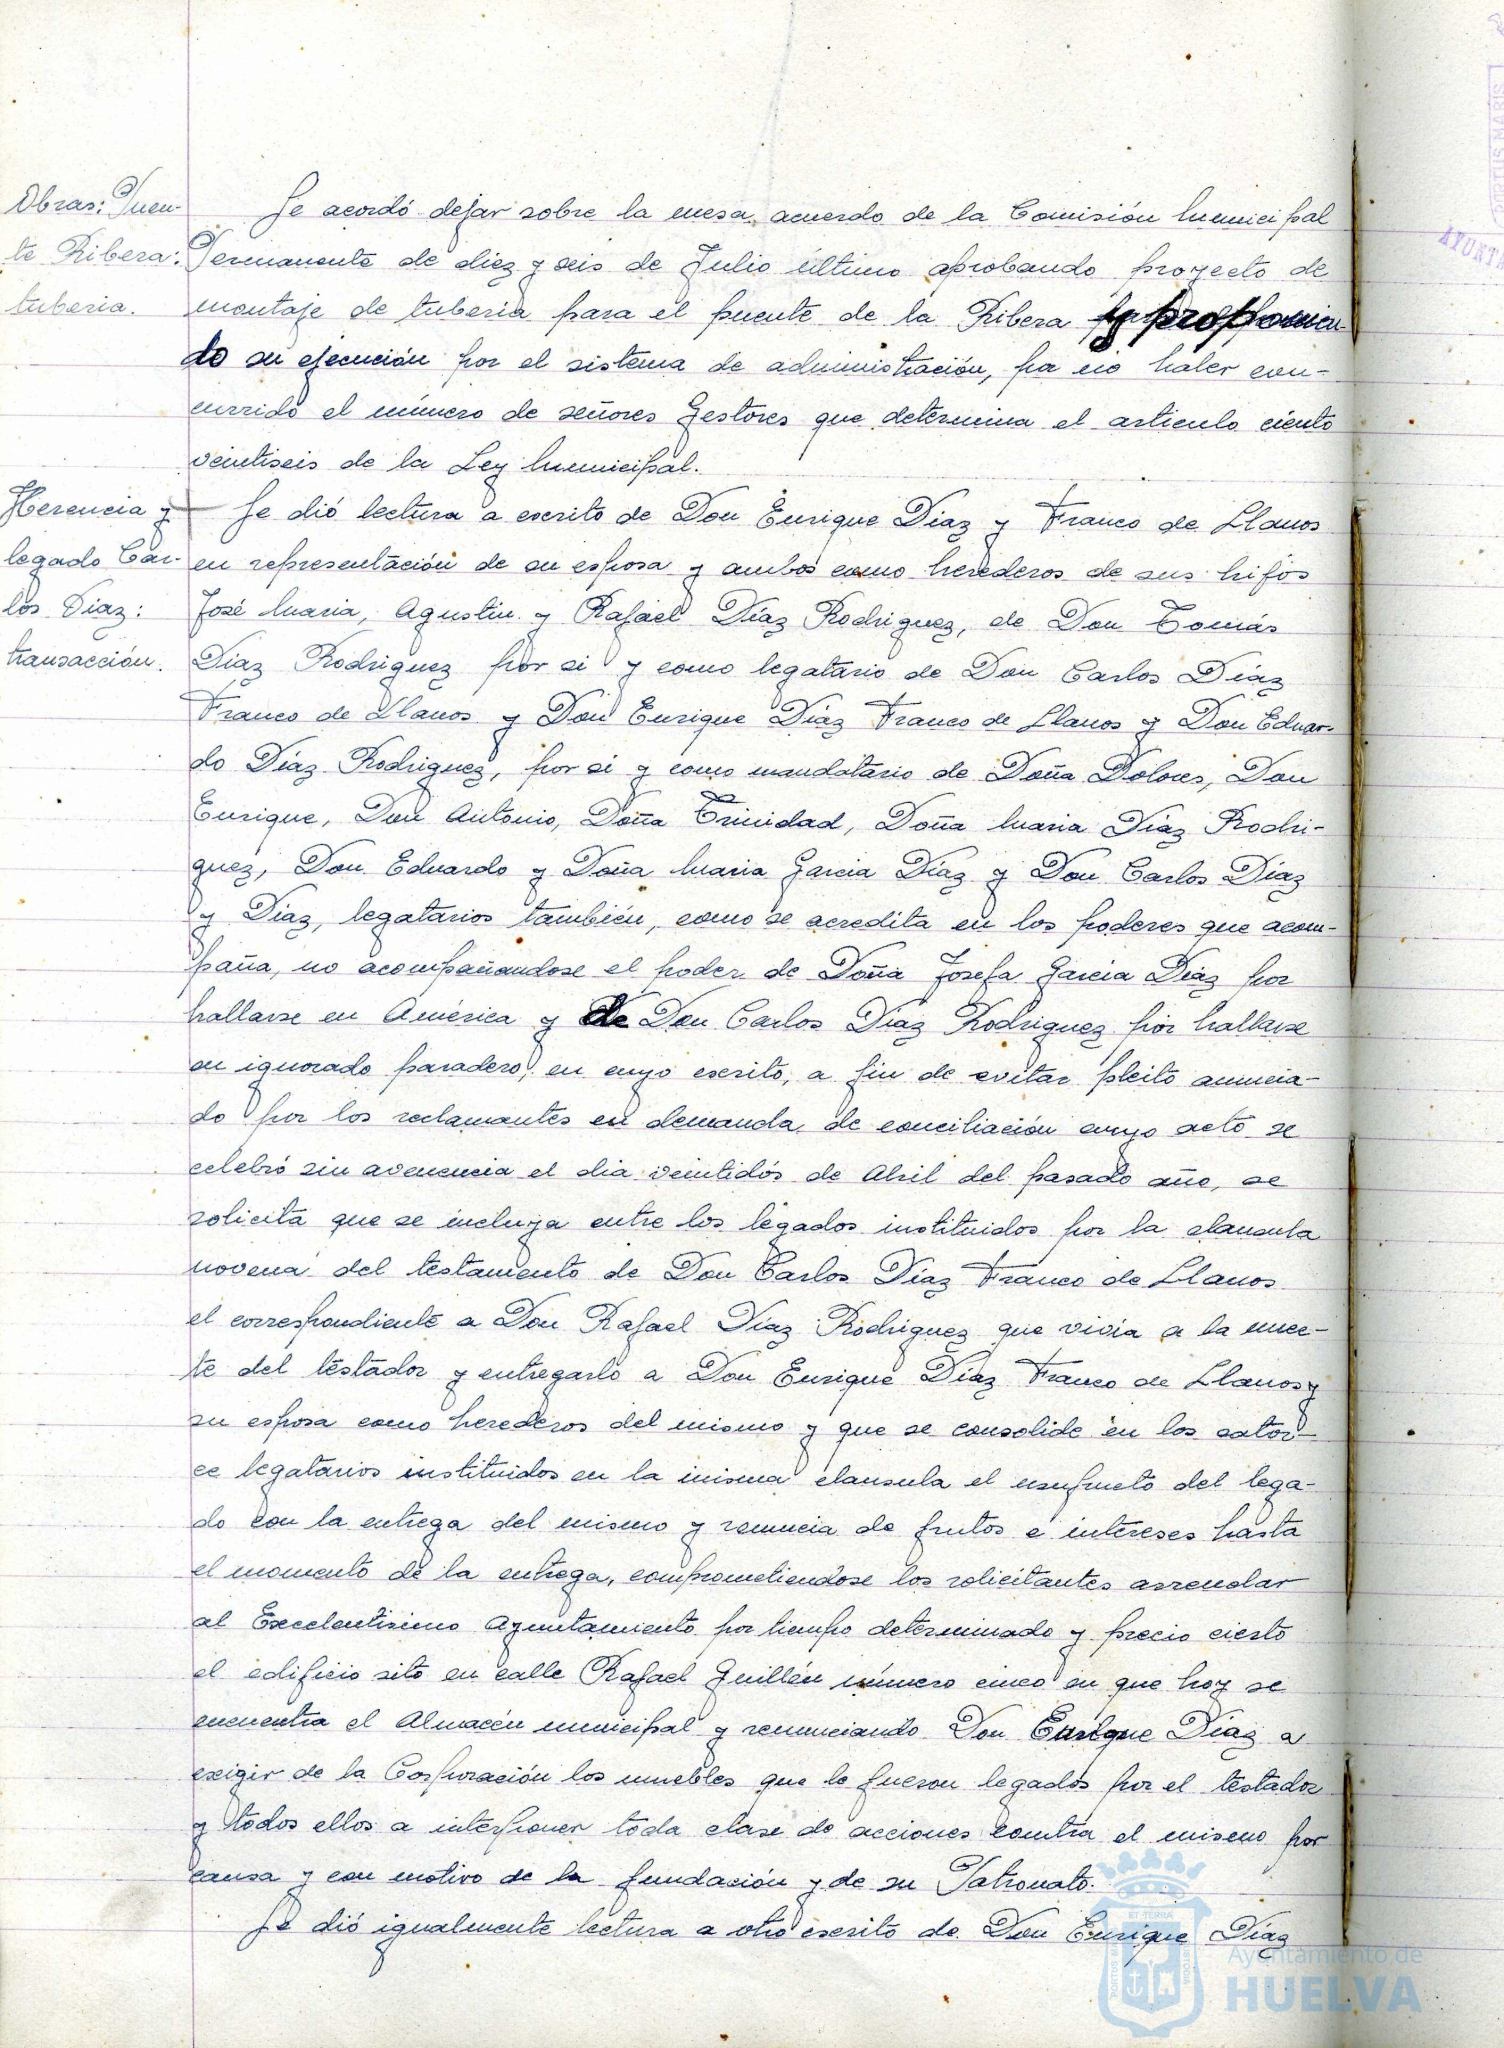 Obras: Puen-
te Ribera:
tuberia.
Se acordó dejar sobre la mesa acuerdo de la Comisión Municipal
Permanente de diez y seis de Julio último aprobando proyecto de
montaje de tuberia para el puente de la Ribera y proponien-
do su ejecución por el sistema de administración, por no haber con-
currido el número de señores Gestores que determina el articulo ciento
veintiseis de la Ley Municipal.
Herencia y
legado Car-
los Diaz:
transacción.
Se dió lectura a escrito de Don Enrique Diaz y Franco de Llanos
en representación de su esposa y ambos como herederos de sus hijos
José Maria, Agustin y Rafael Díaz Rodriguez, de Don Tomás
Diaz Rodriguez por si y como legatario de Don Carlos Díaz
Franco de Llanos y Don Enrique Díaz Franco de Llanos y Don Eduar-
do Díaz Rodriguez, por si y como mandatario de Doña Dolores, Don
Enrique, Don Antonio, Doña Trinidad, Doña Maria Díaz Rodri-
guez, Don Eduardo y Doña Maria Garcia Díaz y Don Carlos Díaz
y Diaz, legatarios también, como se acredita en los poderes que acom-
paña, no acompañandose el poder de Doña Josefa Garcia Diaz por
hallarse en América y de Don Carlos Diaz Rodriguez por hallarse
en ignorado paradero, en cuyo escrito, a fin de evitar pleito anuncia-
do por los reclamantes en demanda de conciliación cuyo acto se
celebró sin avenencia el dia veintidós de Abril del pasado año, se
solicita que se incluya entre los legados instituidos por la clausula
novena del testamento de Don Carlos Diaz Franco de Llanos
el correspondiente a Don Rafael Diaz Rodriguez que vivia a la muer-
te del testador y entregarlo a Don Enrique Díaz Franco de Llanos y
su esposa como herederos del mismo y que se consolide en los cator-
ce legatarios instituidos en la misma clausula el usufructo del lega-
do con la entrega del mismo y renuncia de frutos e intereses hasta
el momento de la entrega, comprometiendose los solicitantes arrendar
al Excelentisimo Ayuntamiento por tiempo determinado y precio cierto
el edificio sito en calle Rafael Guillén número cinco en que hoy se
encuentra el Almacén municipal y renunciando Don Enrique Diaz a
exigir de la Corporación los muebles que le fueron legados por el testador
y todos ellos a interponer toda clase de acciones contra el mismo por
causa y con motivo de la fundación y de su Patronato.
Se dió igualmente lectura a otro escrito de Don Enrique Díaz
Ayuntamiento de
HUELVA